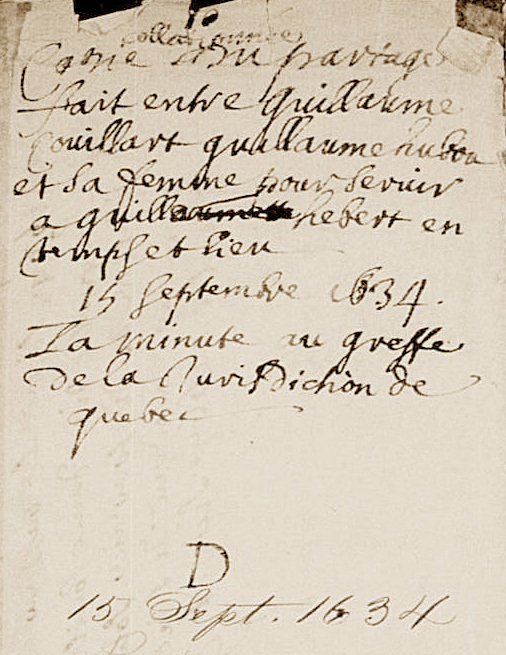 collationnée
Copie d'un partage
fait entre guillaume
Couillart guillaume hubou
et sa femme pour servir
a guillaumette hebert en
temps et lieu
15 Septembre 1634.
La minute au greffe
De la Jurisdiction de
quebec
D
15 Sept. 1634